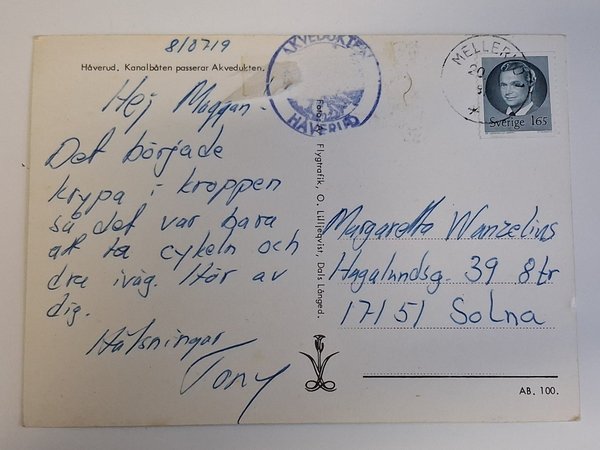 8/0719
Håverud, Kanalbåten passerar Akvedukten.
Hej Maggan!
Det började
krypa i kroppen
så det var bara
att ta cykeln och
dra iväg. Hör av
dig.
Hälsningar
Tony
AKVEDUKTEN
HÅVERUD
Flygtrafik, O. Lilljeqvist, Dals Långed.
MELLER
20
Sverige 165
Margaretta Wanzelius
Hagalundsg. 39 8tr
17151 Solna
AB. 100.